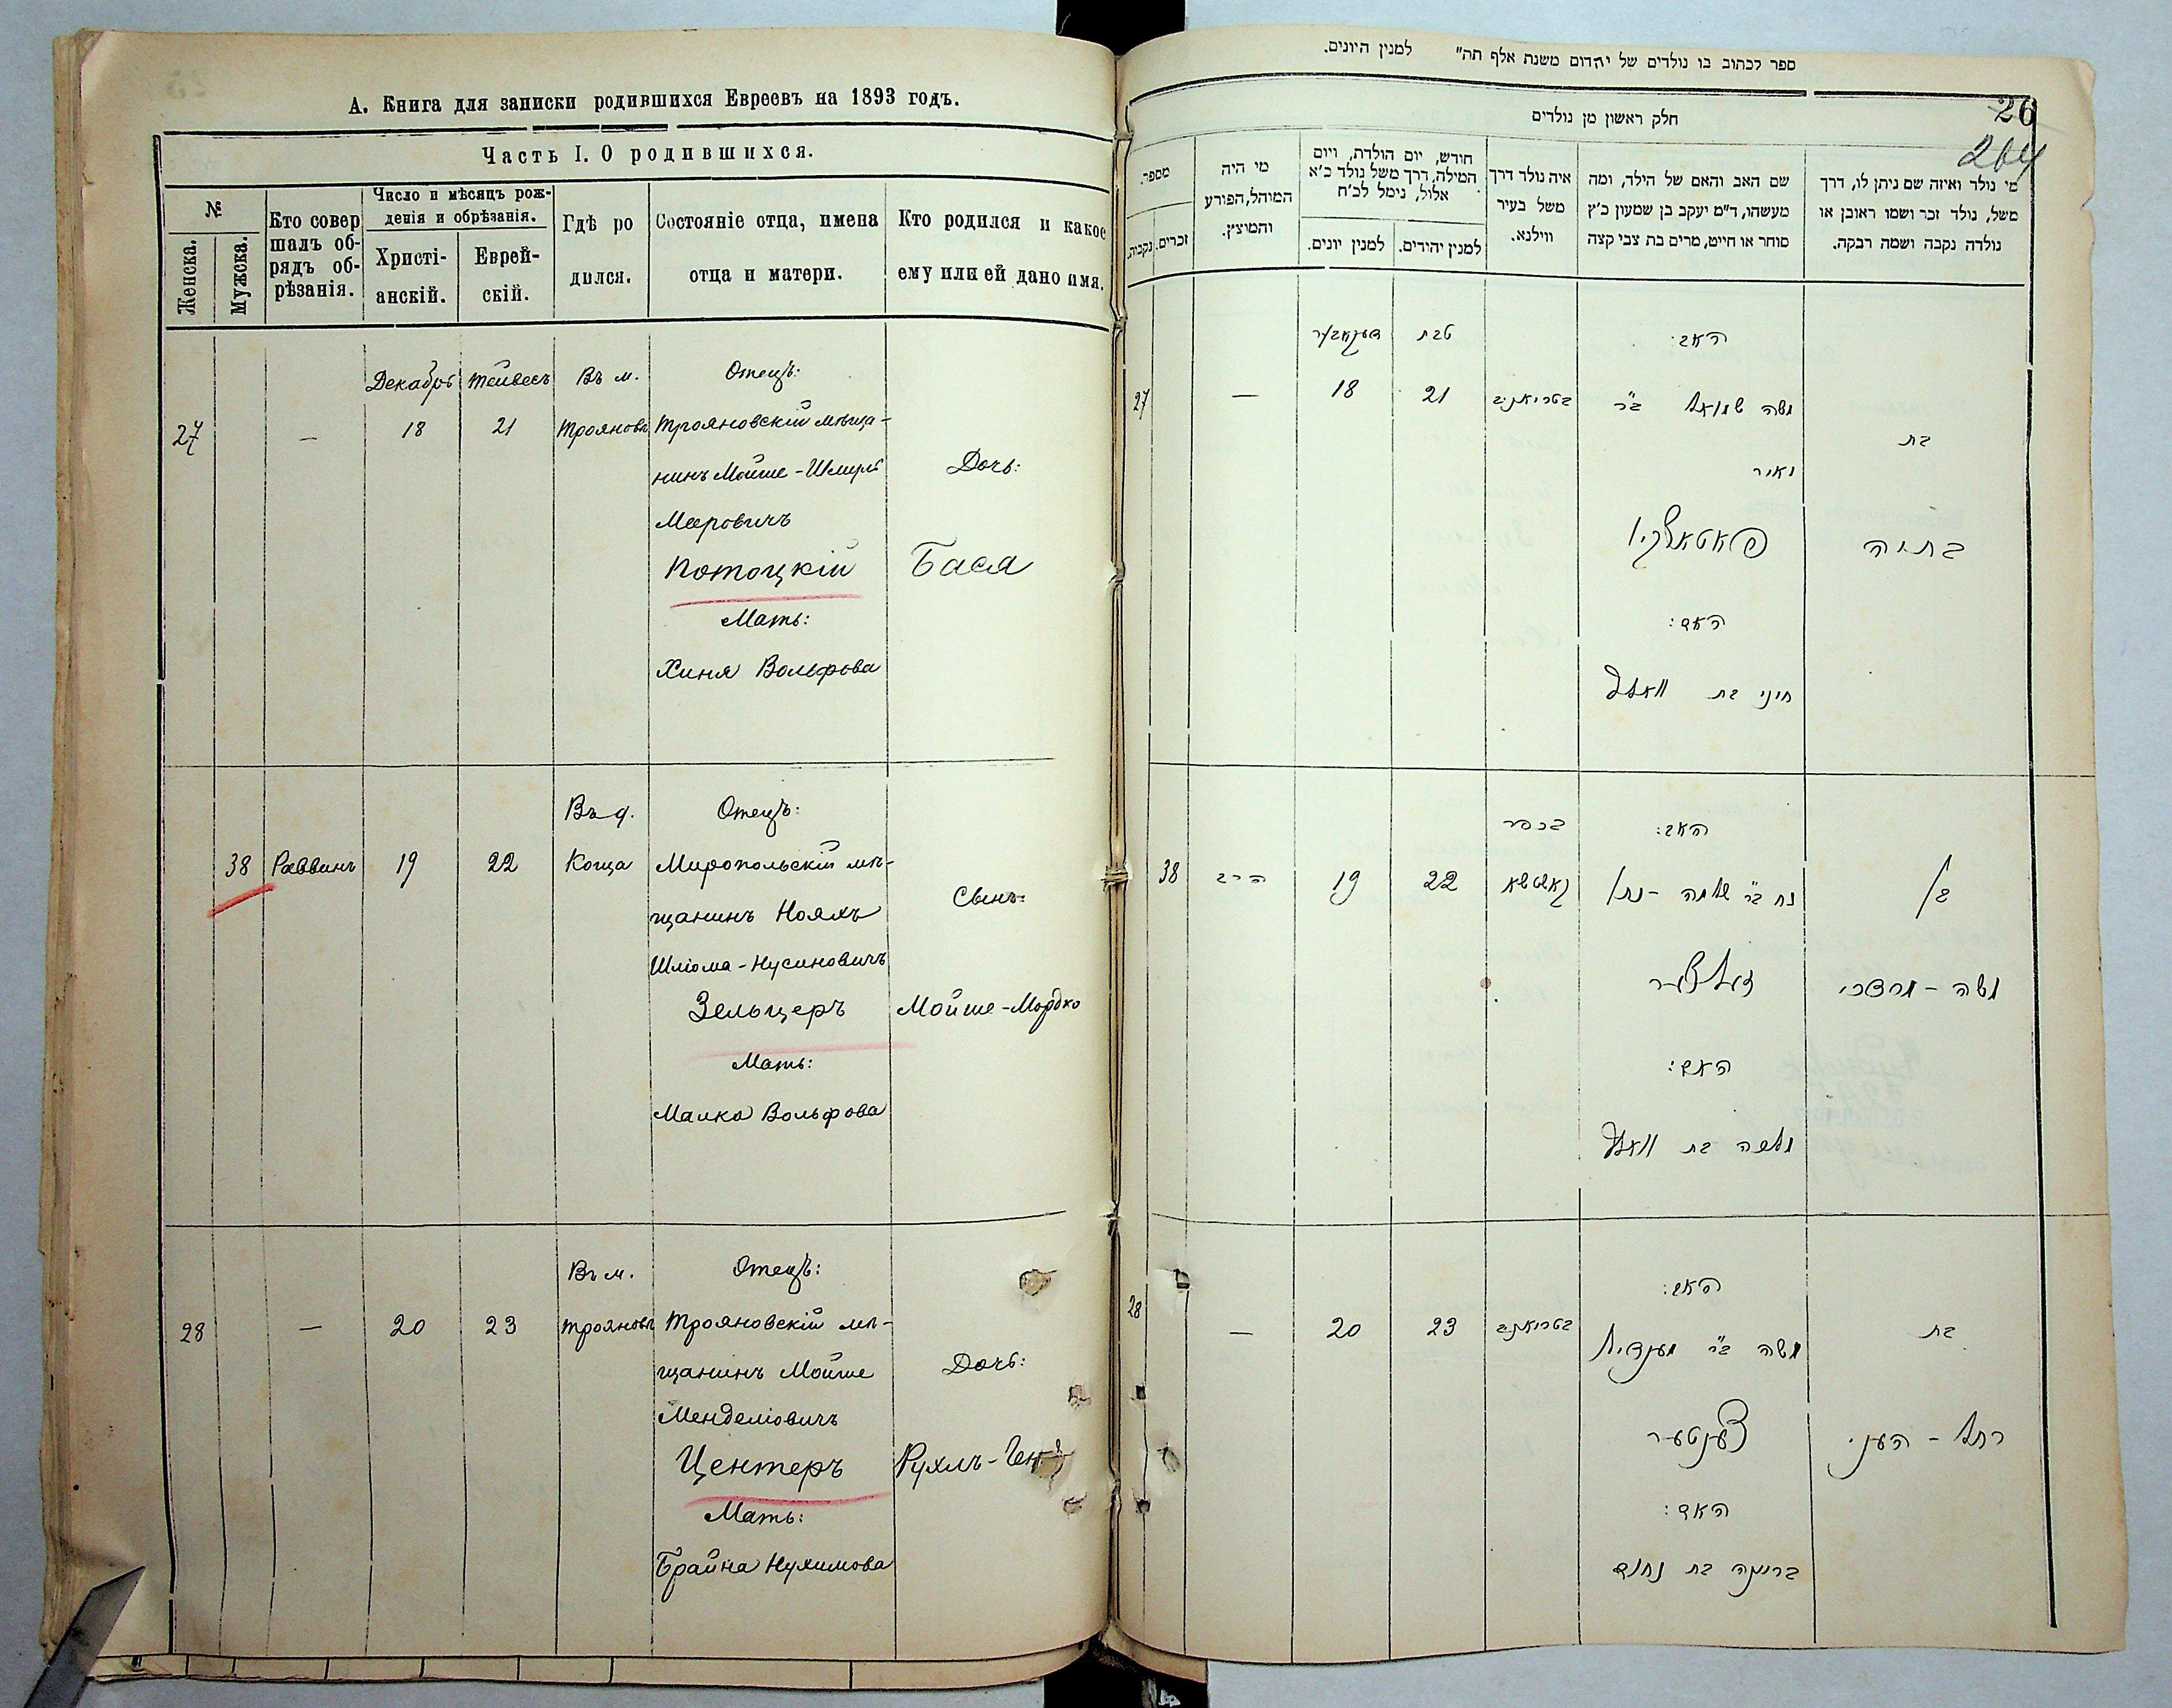 А. Книга для записки родившихся Евреевъ на 1893 годъ.
Часть I. О родившихся.
№
Женска.
Мужска.
Кто совер
шалъ об-
рядъ об-
рѣзанія.
Число и мѣсяцъ рож-
денія и обрѣзанія.
Христі-
анскій.
Еврей-
скій.
Гдѣ ро
дился.
Состояніе отца, имена
отца и матери.
Кто родился и какое
ему или ей дано имя.
27
—
Декабрь
18
Тейвесъ
21
Въ м.
Трояновъ
Отецъ:
Трояновскій мѣща-
нинъ Мойше-Шмуль
Мееровичъ
Потоцкій
Мать:
Хиня Вольфова
Дочь:
Бася
38
Раввинъ
19
22
Въ д.
Коща
Отецъ:
Миропольскій мѣ-
щанинъ Нояхъ
Шліома-Нусиновичъ
Зельцеръ
Мать:
Малка Вольфова
Сынъ:
Мойше-Мордко
28
—
20
23
Въ м.
Трояновъ
Отецъ:
Трояновскій мѣ-
щанинъ Мойше
Менделіовичъ
Центеръ
Мать:
Брайна Нухимова
Дочь:
Рухль-
ספר לכתוב בו נולדים של יהדום משנת אלף תה" למנין היונים.
חלק ראשון מן נולדים
26
264
מי נולד ואיזה שם ניתן לו, דרך
משל, נולד זכר ושמו ראובן או
נולדה נקבה ושמה רבקה.
שם האב והאם של הילד, ומה
מעשהו, ד"מ יעקב בן שמעון כ'ץ
סוחר או חייט, מרים בת צבי קצה
איה נולד דרך
משל בעיר
ווילנא.
חודש, יום הולדת, ויום
המילה, דרך משל נולד כ'א
אלול, נימל לכ'ח
למנין יהודים.
למנין יונים.
מי היה
המוהל, הפורע
והמוצץ.
מספר.
זכרים.
נקבות.
בת
בתיה
האב:
משה שמואל ב"ר
מאיר
פאטאצקי
האם:
חיני בת וואלף
בטריאנוב
טבת
21
דעקאבער
18
—
27
בן
משה - מרדכי
האב:
נח ב"ר שלמה - נתן
זעלצער
האם:
מלכה בת וואלף
בכפר
קאשטשא
22
19
הרב
38
בת
רחל - העני
האב:
משה ב"ר מענדיל
צענטער
האם:
בריינה בת נחום
בטריאנוב
23
20
—
28